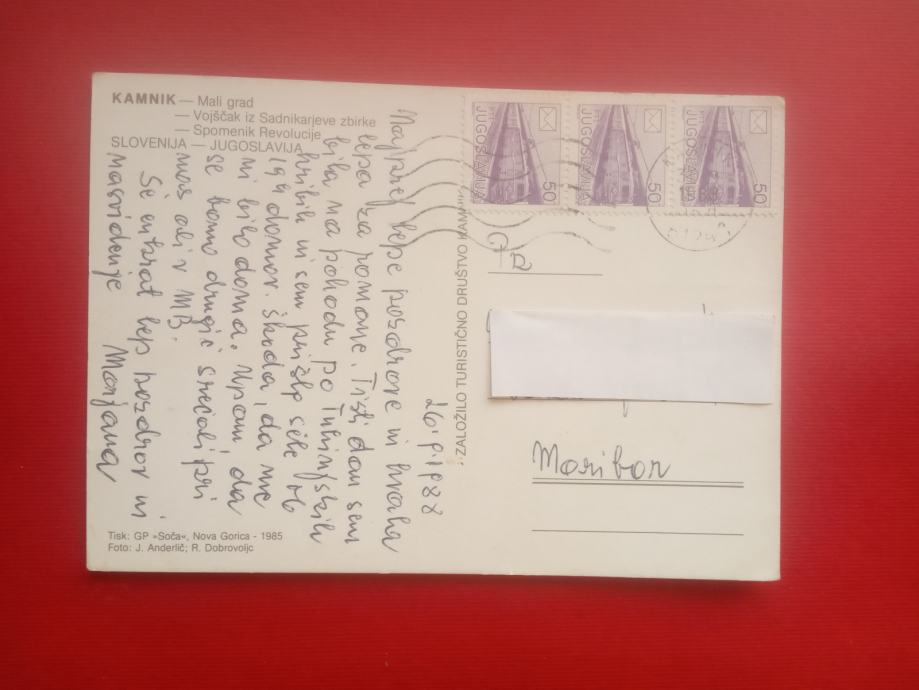 KAMNIK — Mali grad
— Vojščak iz Sadnikarjeve zbirke
— Spomenik Revolucije
SLOVENIJA — JUGOSLAVIJA
26.9.1988
Najprej lepe pozdrave in hvala
lepa za romane. Tisti dan sem
bila na pohodu po Tuhinjskih
hribih in sem prišla šele ob
19h domov. Škoda, da me
ni bilo doma. Upam, da
se bomo drugič srečali pri
nas ali v MB.
Še enkrat lep pozdrav in
nasvidenje
Marjana
Tisk: GP »Soča«, Nova Gorica - 1985
Foto: J. Anderlič; R. Dobrovoljc
ZALOŽILO TURISTIČNO DRUŠTVO KAMNIK
PTT JUGOSLAVIJA 50
PTT JUGOSLAVIJA 50
PTT JUGOSLAVIJA 50
Maribor